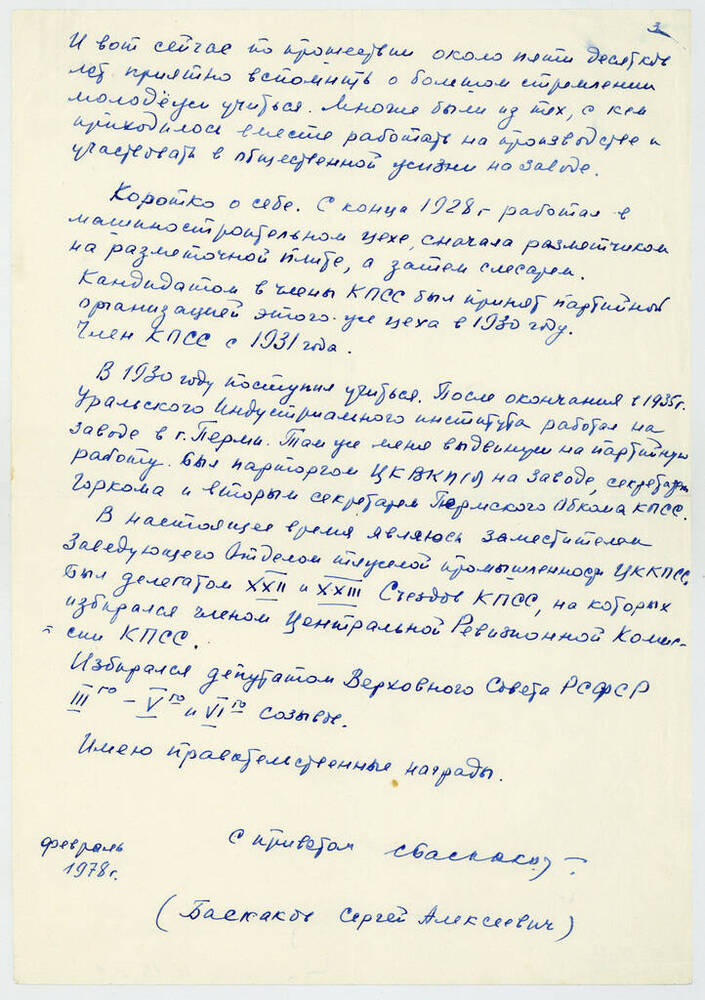 3
И вот сейчас по прошествии около пяти десятков
лет приятно вспомнить о большом стремлении
молодёжи учиться. Многие были из тех, с кем
приходилось вместе работать на производстве и
участвовать в общественной жизни на заводе.
Коротко о себе. С конца 1928 г работал в
машиностроительном цехе, сначала разметчиком
на разметочной плите, а затем слесарем.
Кандидатом в члены КПСС был принят партийной
организацией этого же цеха в 1930 году.
Член КПСС с 1931 года.
В 1930 году поступил учиться. После окончания в 1935 г.
Уральского Индустриального института работал на
заводе в г. Перми. Там же меня выдвинули на партийную
работу. Был парторгом ЦК ВКП(б) на заводе, секретарем
Горкома и вторым секретарем Пермского Обкома КПСС.
В настоящее время являюсь заместителем
Заведующего Отделом тяжелой промышленности ЦК КПСС.
Был делегатом XXII и XXIII Съездов КПСС, на которых
избирался членом Центральной Ревизионной Комис-
сии КПСС.
Избирался депутатом Верховного Совета РСФСР
III го – V го и VI го созывов.
Имею правительственные награды.
С приветом СБаскаков
февраль
1978 г.
(Баскаков Сергей Алексеевич)